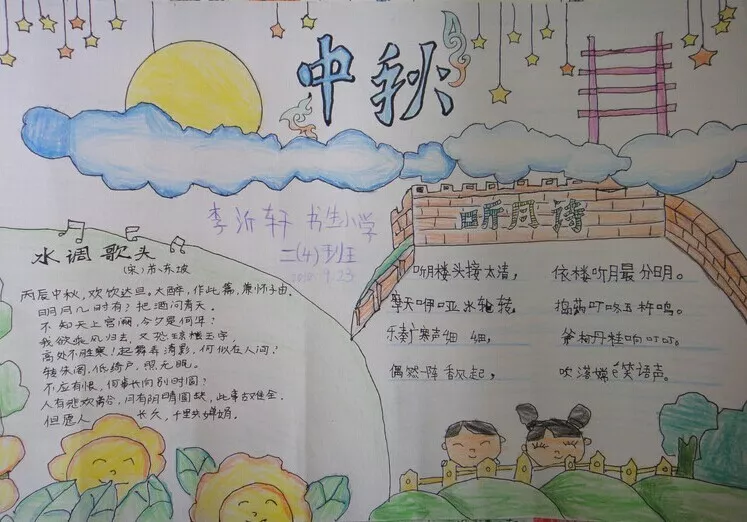 中秋
李沂轩 书生小学
二(4)班
9.23
水调歌头
(宋)苏东坡
丙辰中秋，欢饮达旦，大醉，作此篇，兼怀子由。
明月几时有？把酒问青天。
不知天上宫阙，今夕是何年？
我欲乘风归去，又恐琼楼玉宇，
高处不胜寒，起舞弄清影，何似在人间？
转朱阁，低绮户，照无眠。
不应有恨，何事长向别时圆？
人有悲欢离合，月有阴晴圆缺，此事古难全。
但愿人 长久，千里共婵娟。
听月诗
听月楼头接太清， 依楼听月最分明。
摩天咿哑冰轮转， 捣药叮咚玉杵鸣。
乐奏广寒声细 细， 斧柯丹桂响叮叮。
偶然一阵香风起， 吹落嫦 笑语声。